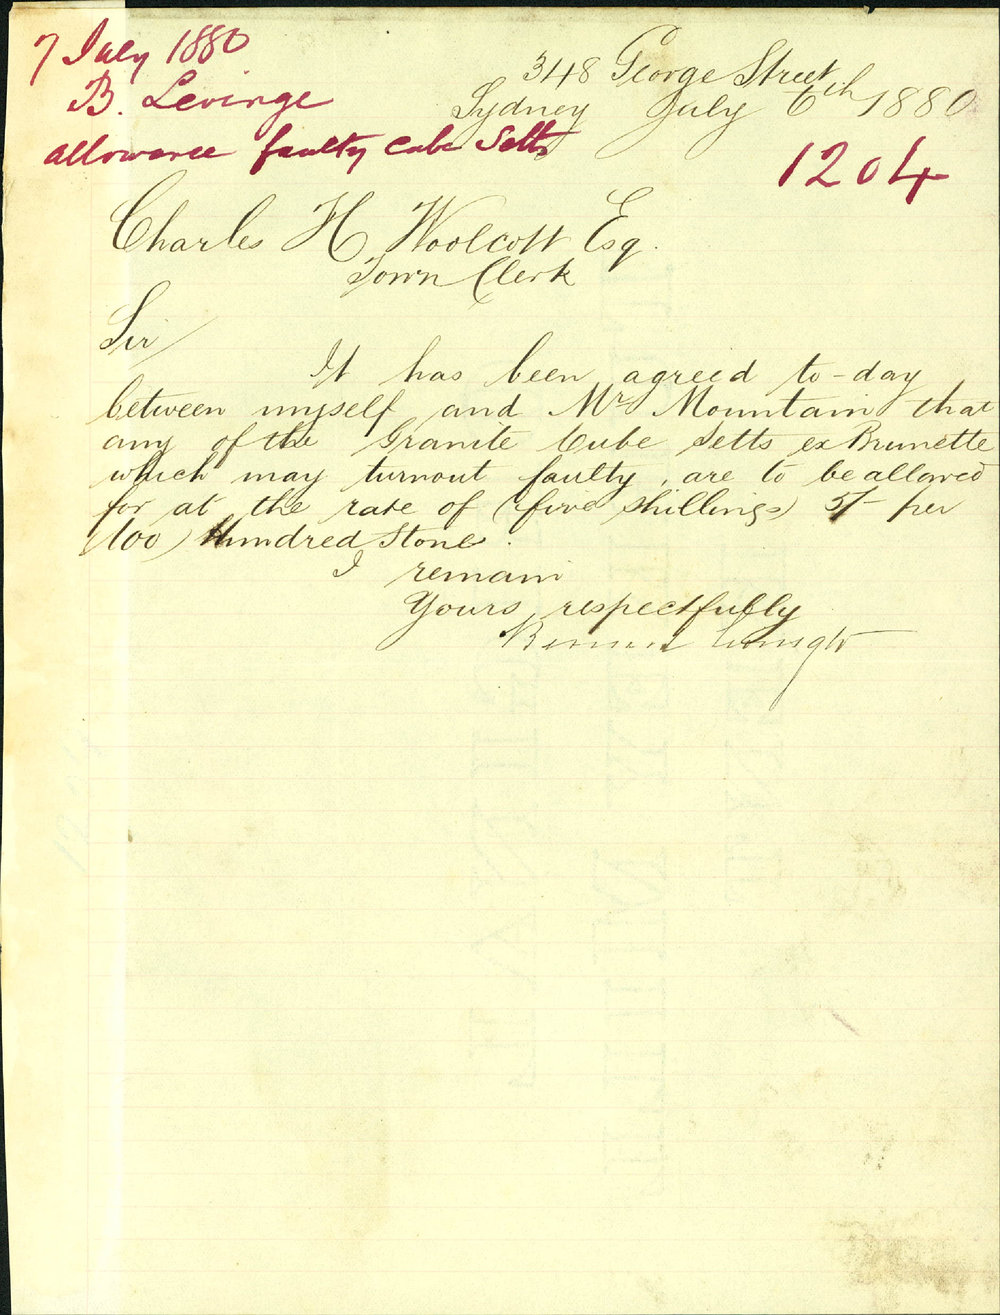 7 July 1880
B. Levinge
allowance faulty cube Setts
348 George Street
Sydney July 6th 1880
1204
Charles H Woolcott Esq.
Town Clerk
Sir/
It has been agreed to-day
between myself and Mr Mountain that
any of the Granite Cube Setts ex Brunette
which may turnout faulty, are to be allowed
for at the rate of (five shillings) 5/- per
(100) Hundred Stone.
I remain
Yours respectfully